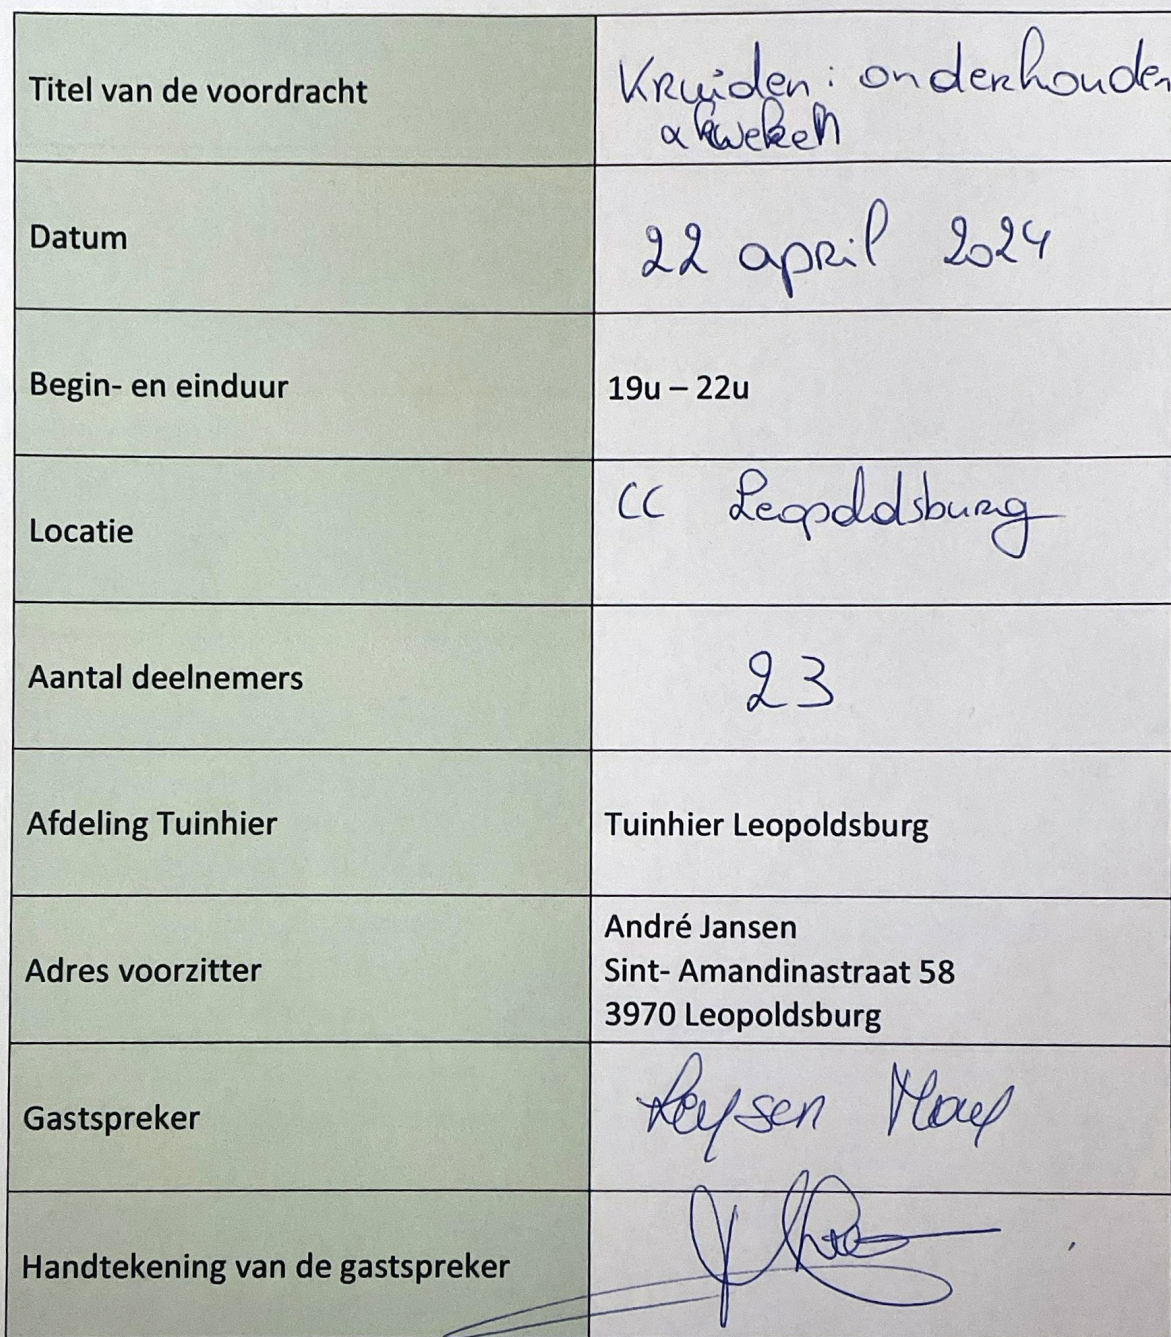 Titel van de voordracht
Kruiden: onderhouden
Datum
22 april 2024
Begin- en einduur
19u – 22u
Locatie
CC Leopoldsburg
Aantal deelnemers
23
Afdeling Tuinhier
Tuinhier Leopoldsburg
Adres voorzitter
André Jansen
Sint- Amandinastraat 58
3970 Leopoldsburg
Gastspreker
Leysen
Handtekening van de gastspreker